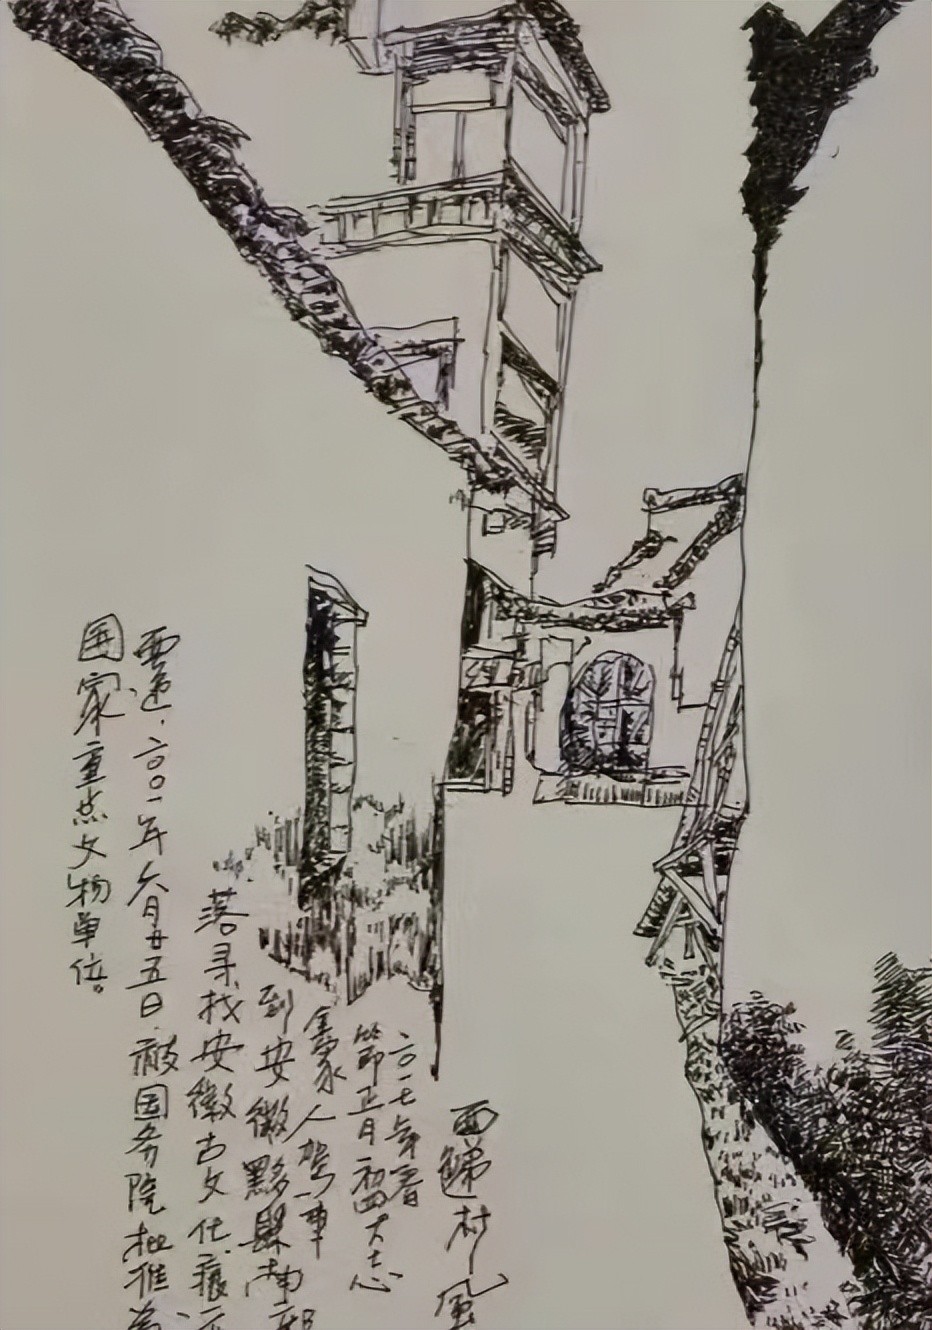 西遞村风
二〇一七年春
節正月初四大志
全家人驾車
到安徽黟县南部
落寻找安徽古文化痕
西递.二〇〇一年六月廿五日.被国务院批准为
国家重点文物单位。